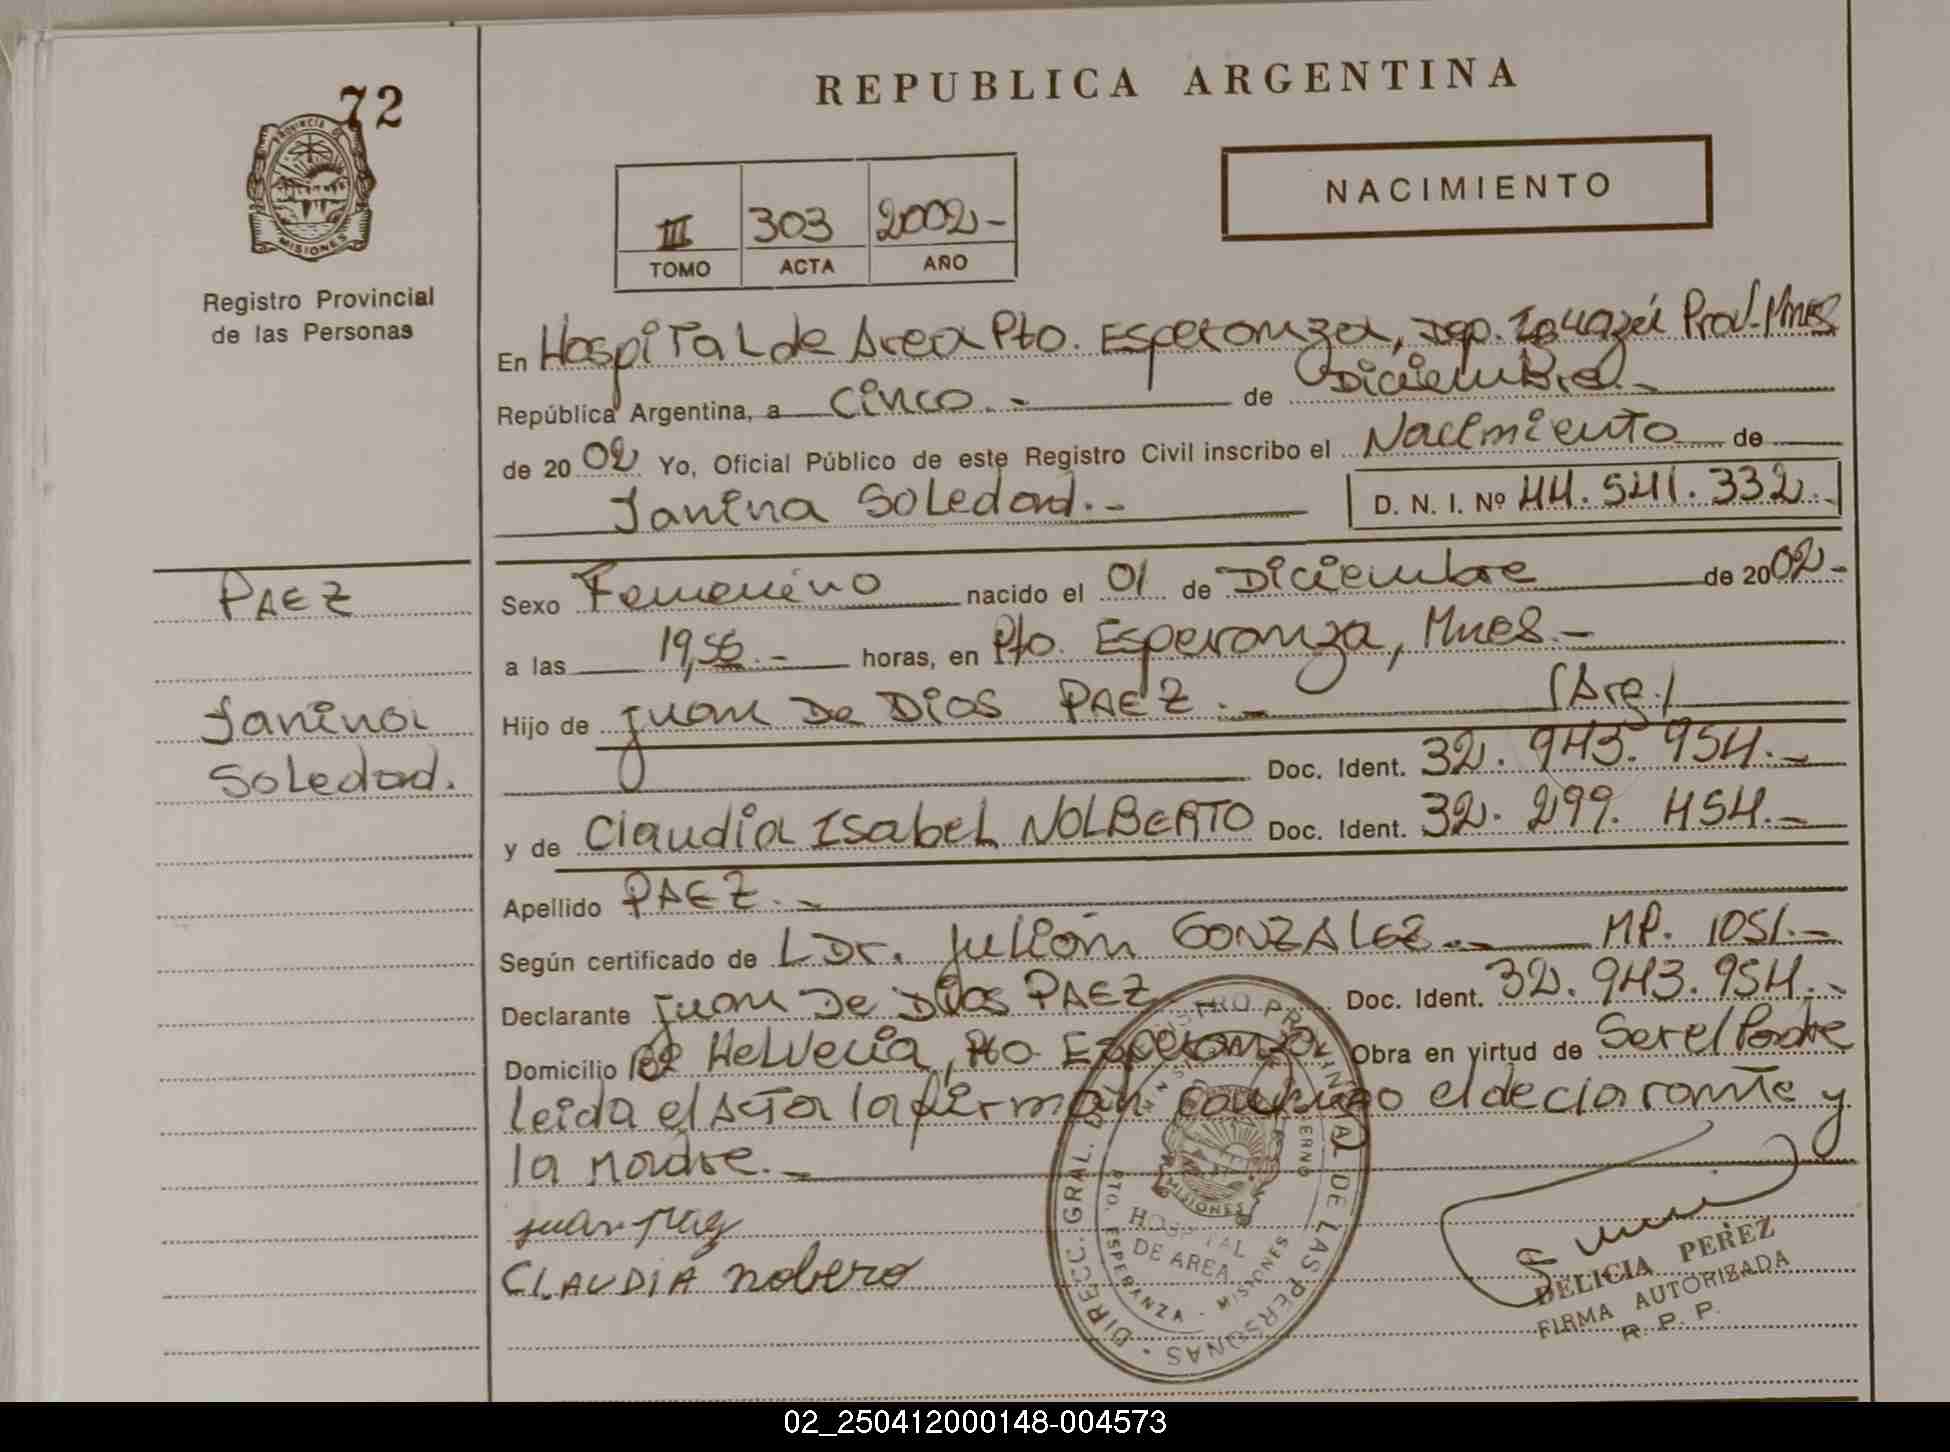 72
PROVINCIA DE
MISIONES
Registro Provincial
de las Personas
REPUBLICA ARGENTINA
NACIMIENTO
III 303 2002-
TOMO ACTA AÑO
En Hospital de Area Pto. Esperanza, Dep. Iguazú Prov. Mnes
República Argentina, a cinco.- de Diciembre.-
de 2002 Yo, Oficial Público de este Registro Civil inscribo el Nacimiento de
Janina Soledad.- D. N. I. Nº 44.541.332.-
PAEZ
Janina
Soledad.
Sexo Femenino nacido el 01 de Diciembre de 2002-
a las 19,56.- horas, en Pto. Esperanza, Mnes.-
Hijo de Juan De Dios PAEZ.- (Arg.)
Doc. Ident. 32.943.954.-
y de Claudia Isabel NOLBERTO Doc. Ident. 32.299.454.-
Apellido PAEZ.-
Según certificado de L Dr. Julián GONZALEZ.- MP. 1051.-
Declarante Juan De Dios PAEZ Doc. Ident. 32.943.954.-
Domicilio Bº Helvecia, Pto Esperanza Obra en virtud de Ser el Padre
leida el Acta la firman conmigo el declarante y
la Madre.-
juan paez
CLAUDIA nolvero
DIRECC. GRAL. REGISTRO PROVINCIAL DE LAS PERSONAS
HOSPITAL
DE AREA
PTO. ESPERANZA - MISIONES
MISIONES
DELICIA PEREZ
FIRMA AUTORIZADA
R. P. P.
02_250412000148-004573